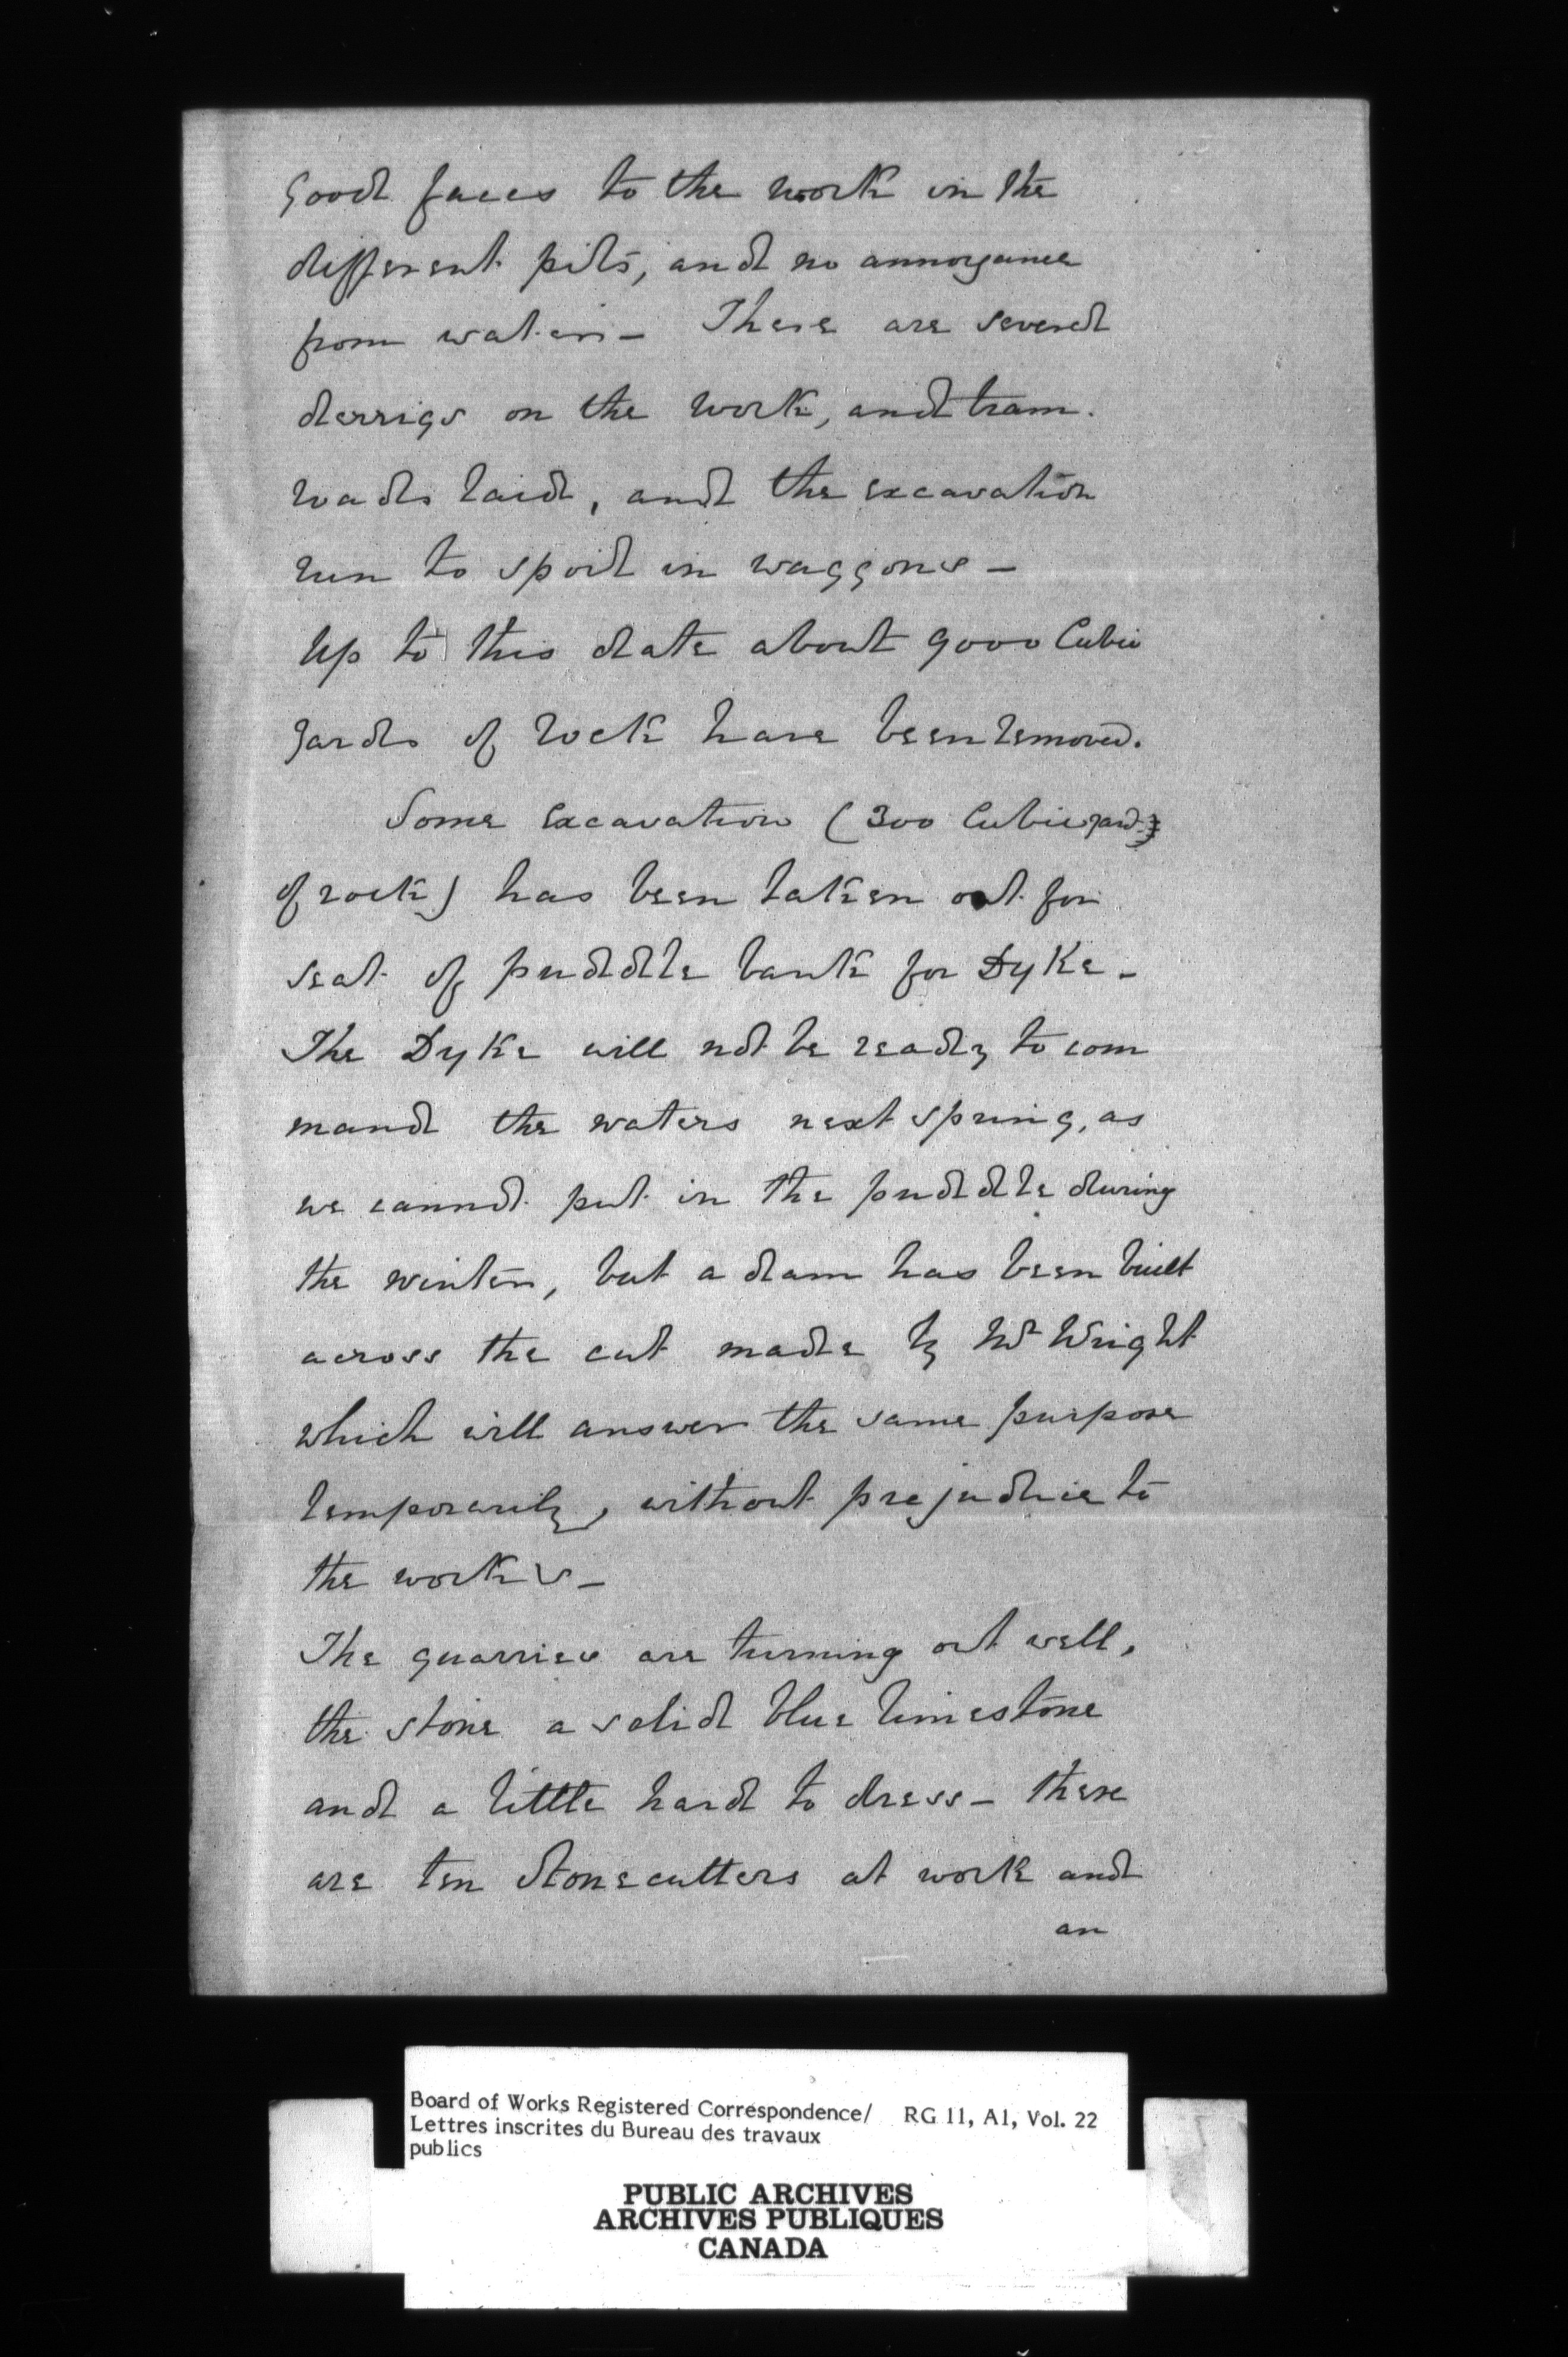 Good faces to the work in the
different pits, and no annoyance
from water - There are several
derrigs on the work, and tram.
roads laid, and the excavation
run to spoil in waggons -
Up to this date about 9000 Cubic
yards of rock have been removed.
Some excavation (300 Cubic yards
of rock) has been taken out for
seat of puddle bank for Dyke -
The Dyke will not be ready to com
mand the waters next spring, as
we cannot put in the puddle during
the winter, but a dam has been built
across the cut made by Mr Wright
which will answer the same purpose
temporarily, without prejudice to
the works -
The quarries are turning out well,
the stone a solid blue limestone
and a little hard to dress - there
are ten Stonecutters at work and
an
Board of Works Registered Correspondence/ RG 11, A1, Vol. 22
Lettres inscrites du Bureau des travaux
publics
PUBLIC ARCHIVES
ARCHIVES PUBLIQUES
CANADA